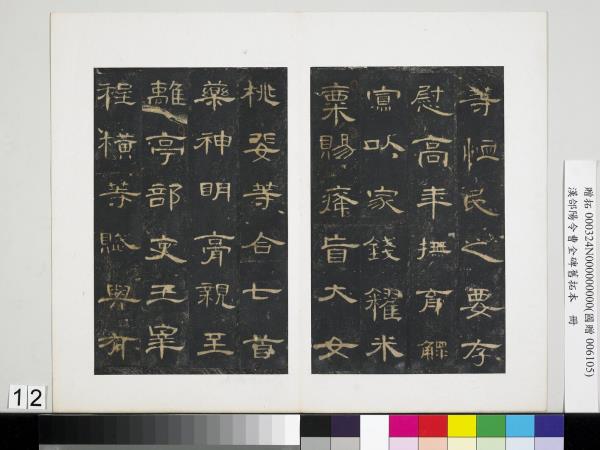 等恤民之要存
慰高年撫育鰥
寡以家錢糴米
粟賜癃盲大女
桃婓等合七首
藥神明膏親至
離亭部吏王宰
程橫等賦與有
贈拓 000324N000000000(國贈 006105)
漢郃陽令曹全碑舊拓本 冊
12